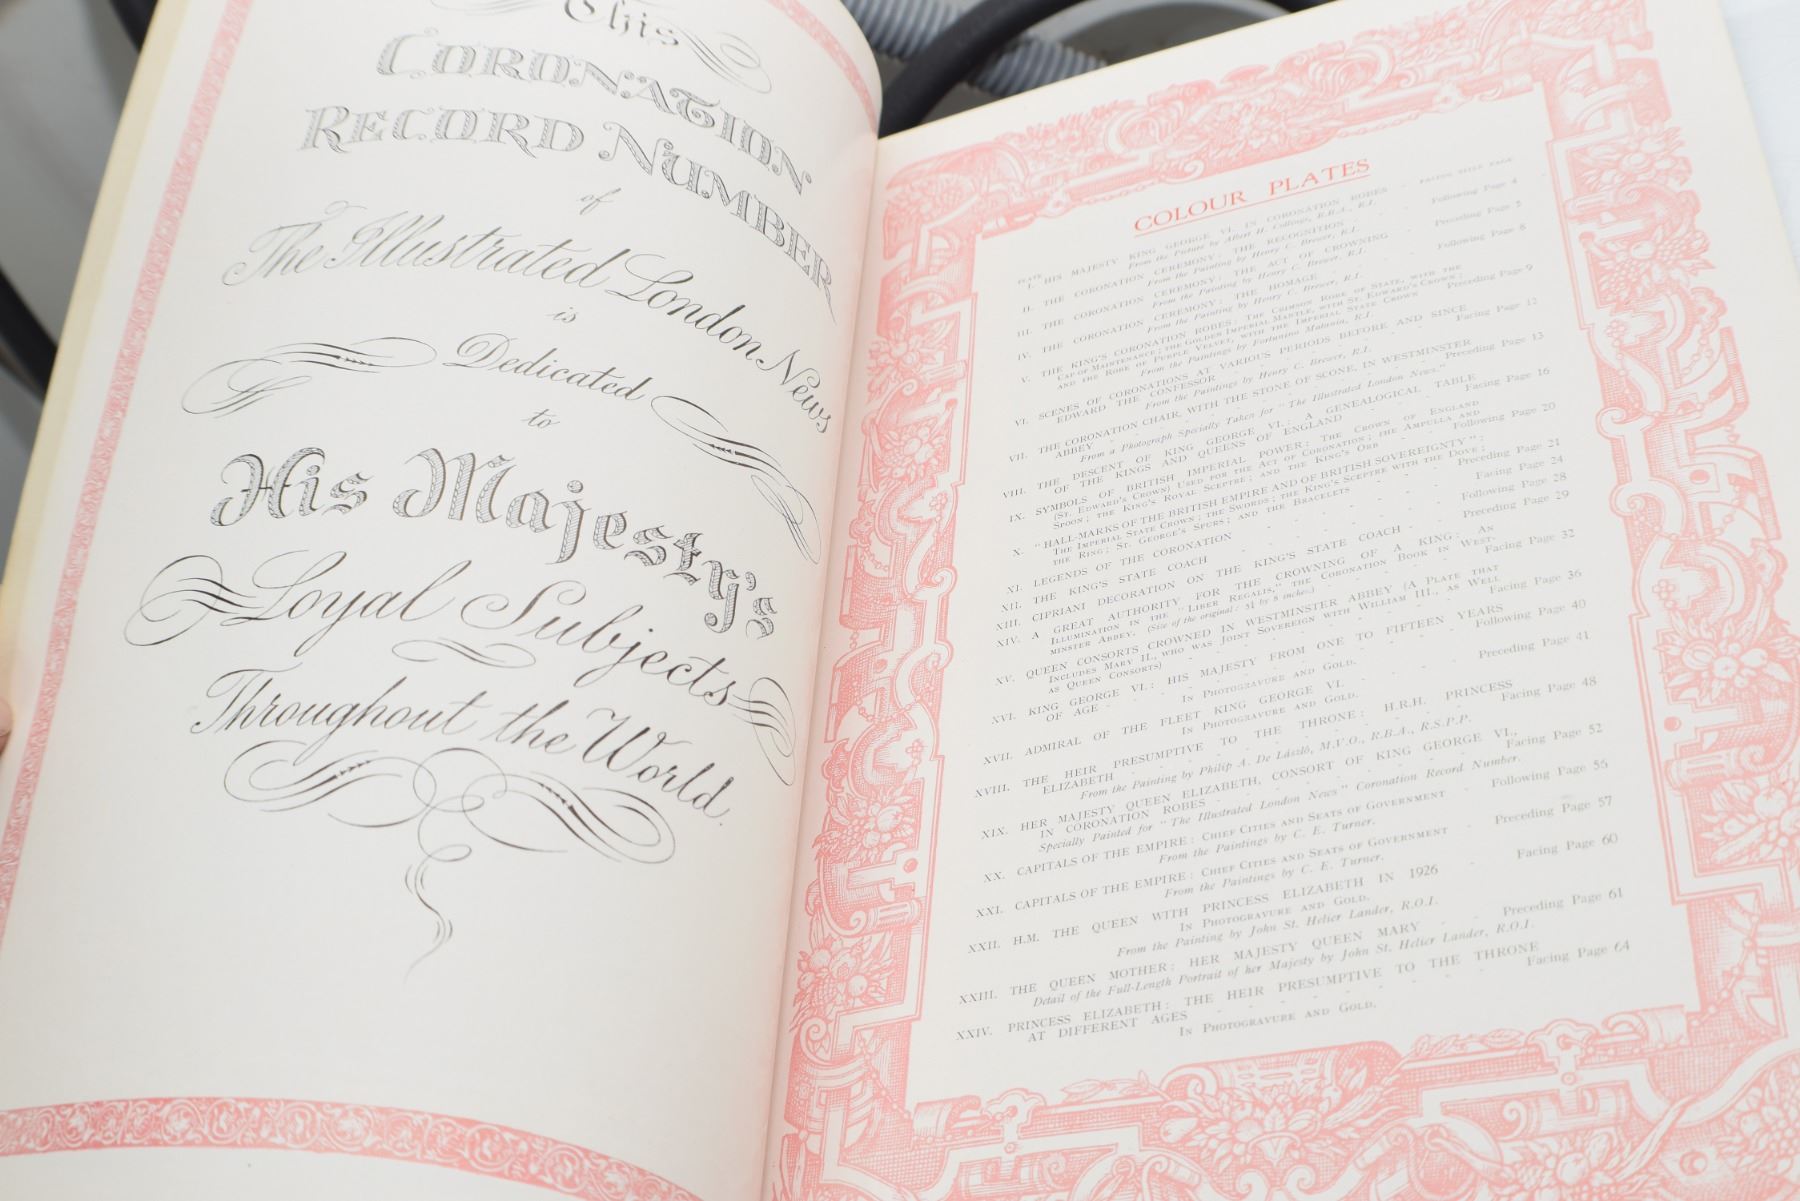 This
CORONATION
RECORD NUMBER
of
The Illustrated London News
is
Dedicated
to
His Majesty's
Loyal Subjects
Throughout the World.
COLOUR PLATES
PLATE FACING TITLE PAGE
I. HIS MAJESTY KING GEORGE VI. IN CORONATION ROBES
From the Picture by Albert H. Collings, R.B.A., R.I.
II. THE CORONATION CEREMONY: THE RECOGNITION - Following Page 4
From the Painting by Henry C. Brewer, R.I.
III. THE CORONATION CEREMONY: THE ACT OF CROWNING - Preceding Page 5
From the Painting by Henry C. Brewer, R.I.
IV. THE CORONATION CEREMONY: THE HOMAGE - Following Page 8
From the Painting by Henry C. Brewer, R.I.
V. THE KING'S CORONATION ROBES: THE CRIMSON ROBE OF STATE, WITH THE
CAP OF MAINTENANCE; THE GOLDEN IMPERIAL MANTLE, WITH ST. EDWARD'S CROWN;
AND THE ROBE OF PURPLE VELVET, WITH THE IMPERIAL STATE CROWN Preceding Page 9
From the Paintings by Fortunino Matania, R.I.
VI. SCENES OF CORONATIONS AT VARIOUS PERIODS BEFORE AND SINCE
EDWARD THE CONFESSOR - Facing Page 12
From the Paintings by Henry C. Brewer, R.I.
VII. THE CORONATION CHAIR, WITH THE STONE OF SCONE, IN WESTMINSTER
ABBEY - Preceding Page 13
From a Photograph Specially Taken for "The Illustrated London News."
VIII. THE DESCENT OF KING GEORGE VI.: A GENEALOGICAL TABLE
OF THE KINGS AND QUEENS OF ENGLAND - Facing Page 16
IX. SYMBOLS OF BRITISH IMPERIAL POWER: THE CROWN OF ENGLAND
(ST. EDWARD'S CROWN) USED FOR THE ACT OF CORONATION; THE AMPULLA AND
SPOON; THE KING'S ROYAL SCEPTRE; AND THE KING'S ORB - Following Page 20
X. "HALL-MARKS OF THE BRITISH EMPIRE AND OF BRITISH SOVEREIGNTY":
THE IMPERIAL STATE CROWN; THE SWORDS; THE KING'S SCEPTRE WITH THE DOVE;
THE RING; ST. GEORGE'S SPURS; AND THE BRACELETS - Preceding Page 21
XI. LEGENDS OF THE CORONATION - Facing Page 24
XII. THE KING'S STATE COACH - Following Page 28
XIII. CIPRIANI DECORATION ON THE KING'S STATE COACH - Preceding Page 29
XIV. A GREAT AUTHORITY FOR THE CROWNING OF A KING: AN
ILLUMINATION IN THE "LIBER REGALIS," THE CORONATION BOOK IN WEST-
MINSTER ABBEY. (Size of the original: 5½ by 8 inches.) - Facing Page 32
XV. QUEEN CONSORTS CROWNED IN WESTMINSTER ABBEY (A PLATE THAT
INCLUDES MARY II., WHO WAS JOINT SOVEREIGN WITH WILLIAM III., AS WELL
AS QUEEN CONSORTS) - Facing Page 36
XVI. KING GEORGE VI.: HIS MAJESTY FROM ONE TO FIFTEEN YEARS
OF AGE - Following Page 40
IN PHOTOGRAVURE AND GOLD.
XVII. ADMIRAL OF THE FLEET KING GEORGE VI. - Preceding Page 41
IN PHOTOGRAVURE AND GOLD.
XVIII. THE HEIR PRESUMPTIVE TO THE THRONE: H.R.H. PRINCESS
ELIZABETH - Facing Page 48
From the Painting by Philip A. De László, M.V.O., R.B.A., R.S.P.P.
XIX. HER MAJESTY QUEEN ELIZABETH, CONSORT OF KING GEORGE VI.,
IN CORONATION ROBES - Facing Page 52
Specially Painted for "The Illustrated London News" Coronation Record Number.
XX. CAPITALS OF THE EMPIRE: CHIEF CITIES AND SEATS OF GOVERNMENT - Following Page 56
From the Paintings by C. E. Turner.
XXI. CAPITALS OF THE EMPIRE: CHIEF CITIES AND SEATS OF GOVERNMENT - Preceding Page 57
From the Paintings by C. E. Turner.
XXII. H.M. THE QUEEN WITH PRINCESS ELIZABETH IN 1926 - Facing Page 60
IN PHOTOGRAVURE AND GOLD.
From the Painting by John St. Helier Lander, R.O.I.
XXIII. THE QUEEN MOTHER: HER MAJESTY QUEEN MARY - Preceding Page 61
Detail of the Full-Length Portrait of her Majesty by John St. Helier Lander, R.O.I.
XXIV. PRINCESS ELIZABETH: THE HEIR PRESUMPTIVE TO THE THRONE
AT DIFFERENT AGES - Facing Page 64
IN PHOTOGRAVURE AND GOLD.